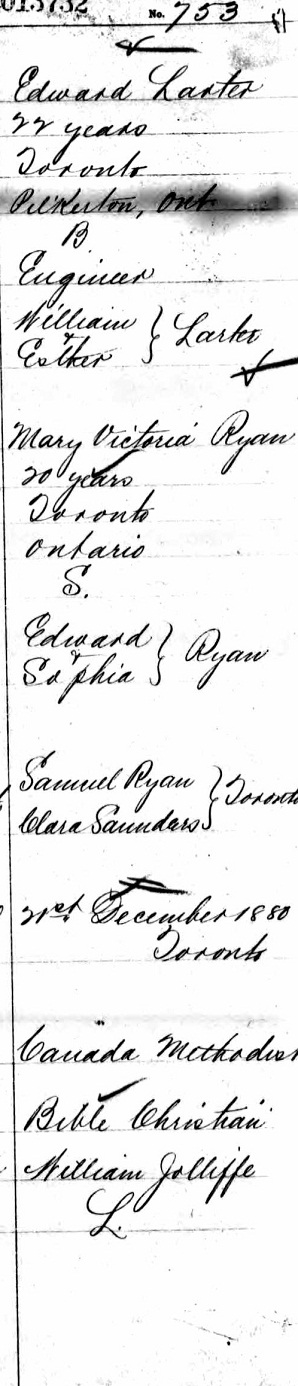 015732
No. 753
Edward Larter
22 years
Toronto
Pilkerton, Ont
B
Engineer
William
&
Esther } Larter
Mary Victoria Ryan
20 years
Toronto
Ontario
S.
Edward
&
Sophia } Ryan
Samuel Ryan
Clara Saunders } Toronto
21st December 1880
Toronto
Canada Methodist
Bible Christian
William Jolliffe
L.